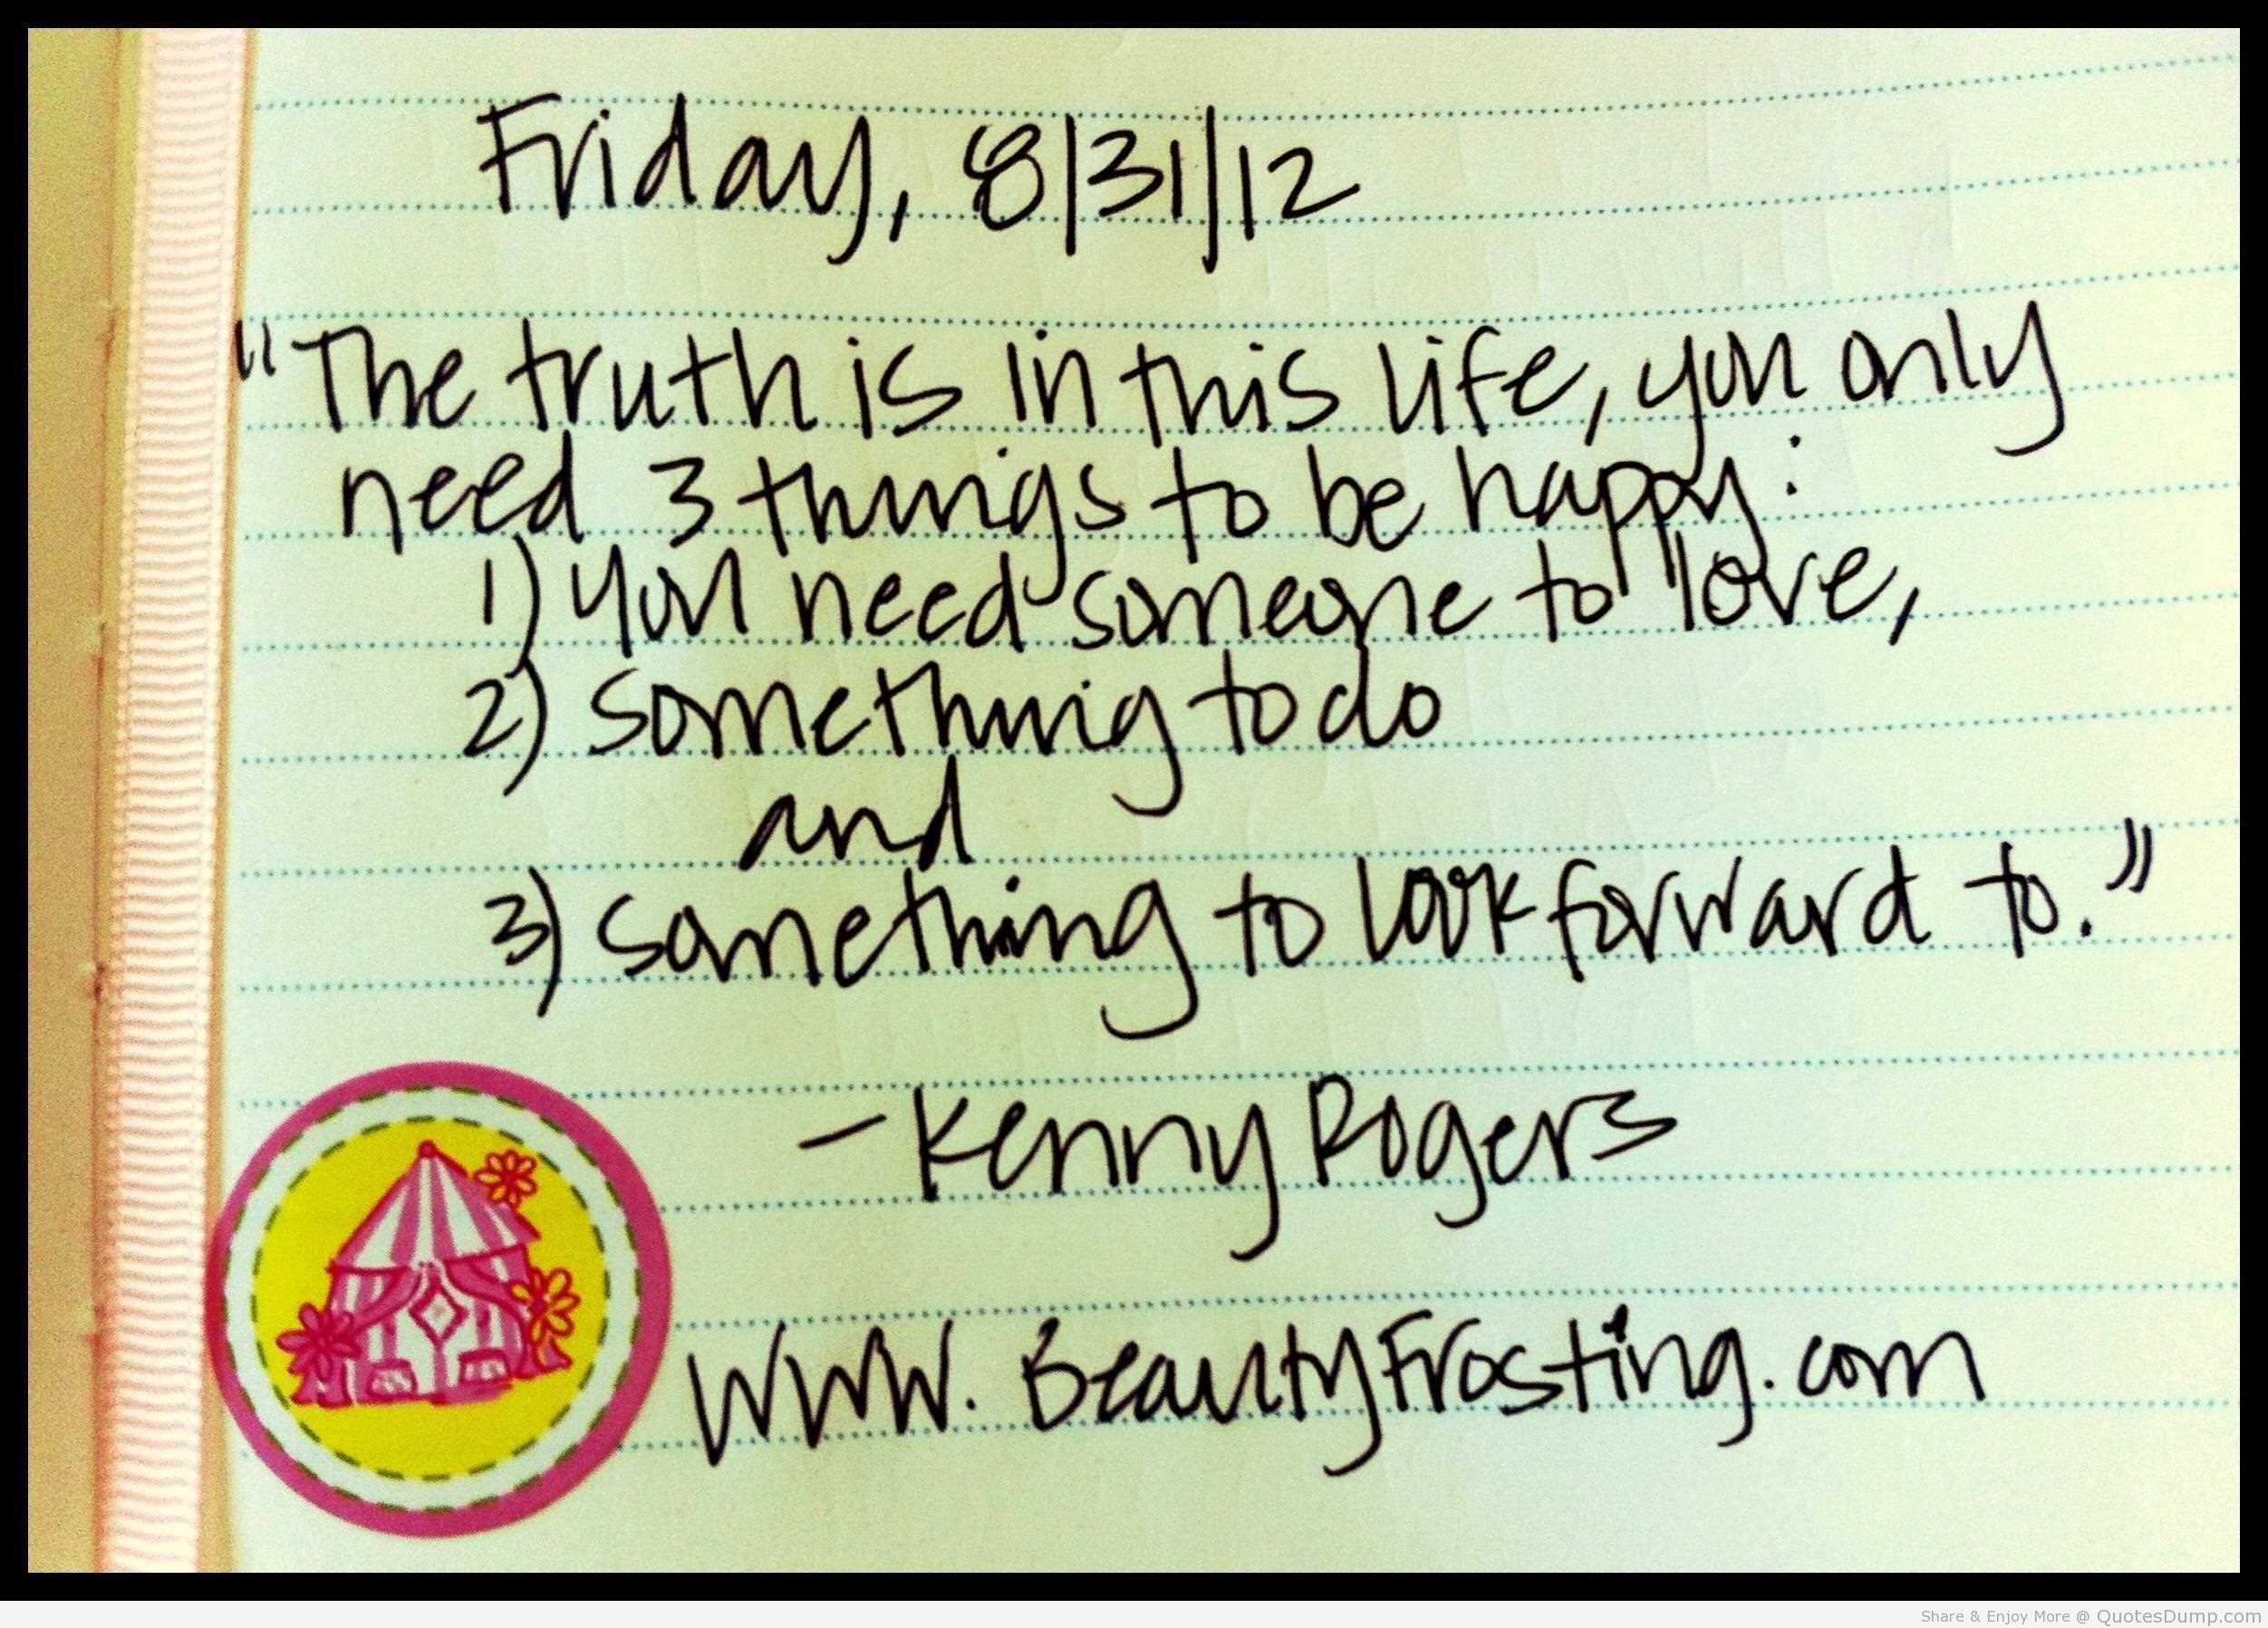 Friday, 8/31/12
"The truth is in this life, you only
need 3 things to be happy:
1) you need someone to love,
2) something to do
and
3) something to look forward to."
- Kenny Rogers
www.BeautyFrosting.com
Share & Enjoy More @ QuotesDump.com